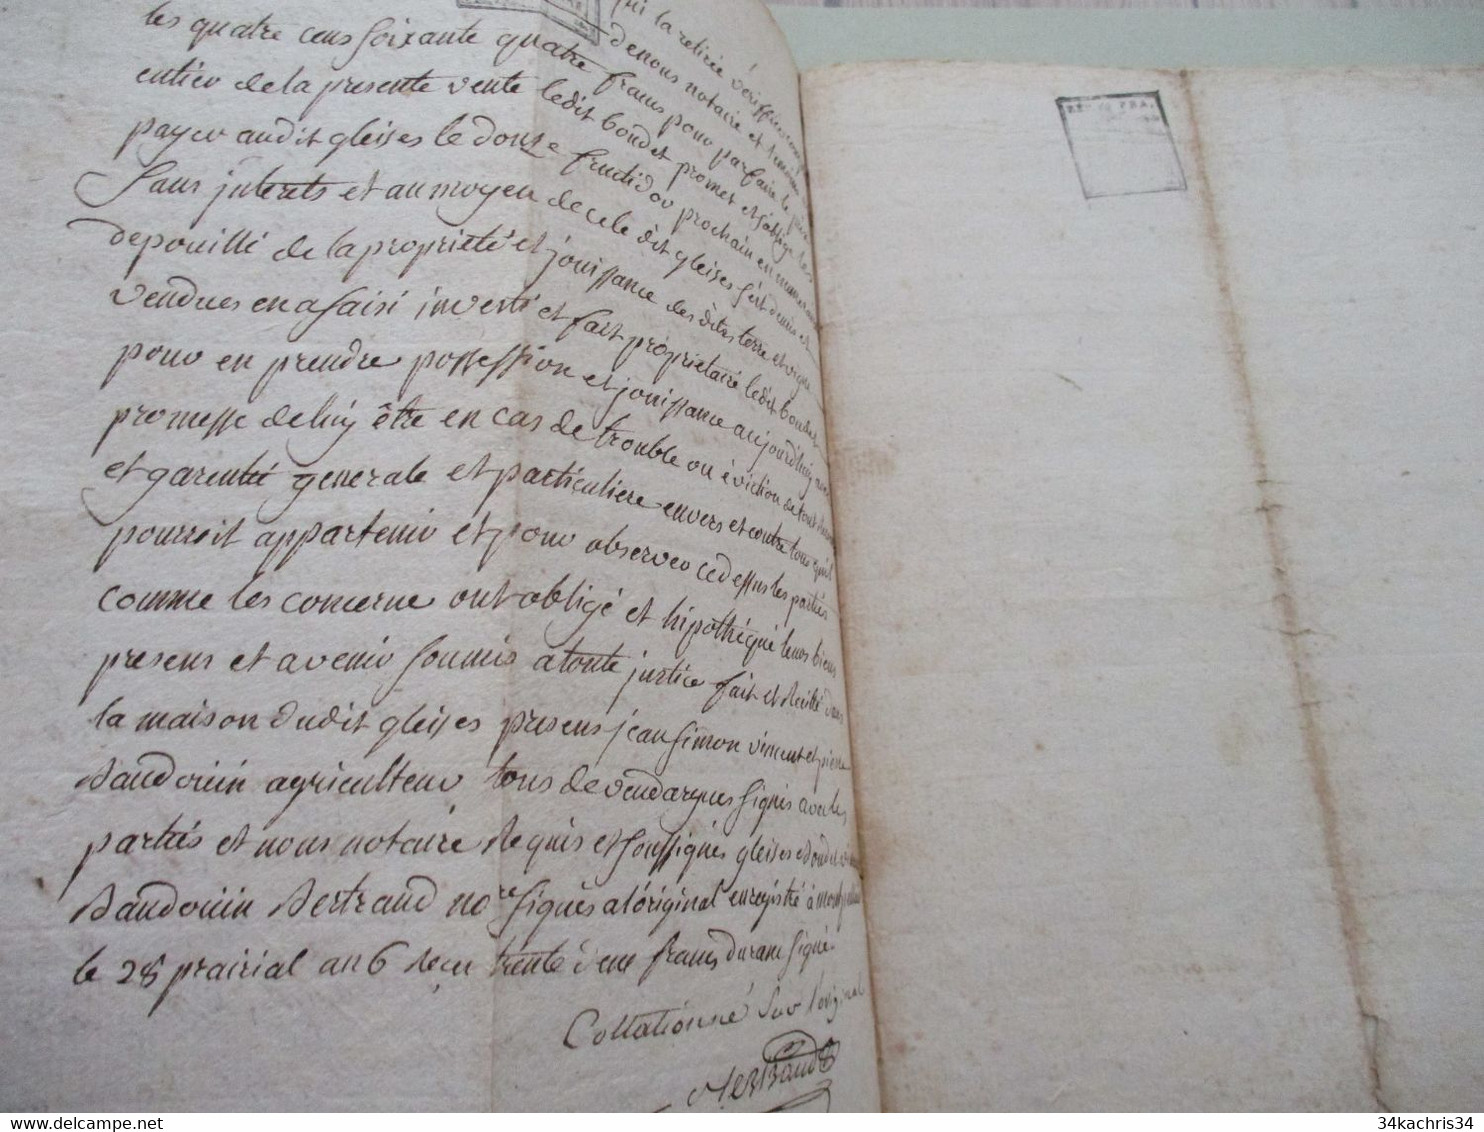 qui la retirée vériffication
denous notaire et temoins
les quatre cens soixante quatre francs pour parfaire le prix
entier de la presente vente ledit boudet promet et s'oblige les
payer audit gleises le douze fructidor prochain en numeraire
sans interets et au moyen de ce le dit gleises s'est demis et
depouillé de la proprieté et jouissance des dites terre et vigne
vendues en a saisi investi et fait proprietaire ledit boudet
pour en prendre possession et jouissance aujourdhuy avec
promesse de luy être en cas de trouble ou éviction de tout
et garentie generale et particuliere envers et contre tous qu'il
pourroit appartenir et pour observer ce dessus les parties
comme les concerne ont obligé et hipothéqué leurs biens
presens et avenir soumis a toute justice fait et Recitté dans
la maison dudit gleises presens jean simon vincent et pierre
Baudouin agriculteur tous de vendargues signés avec les
parties et nous notaire Requis et soussignés gleises Boudet
Baudouin Bertrand nore signés a l'original enregistré à montpellier
le 28 prairial an 6 Reçu trente deux francs durane signé.
Collationné sur l'original
Bertrand
REP. DE FRA.
34kachris34
delcampe.net